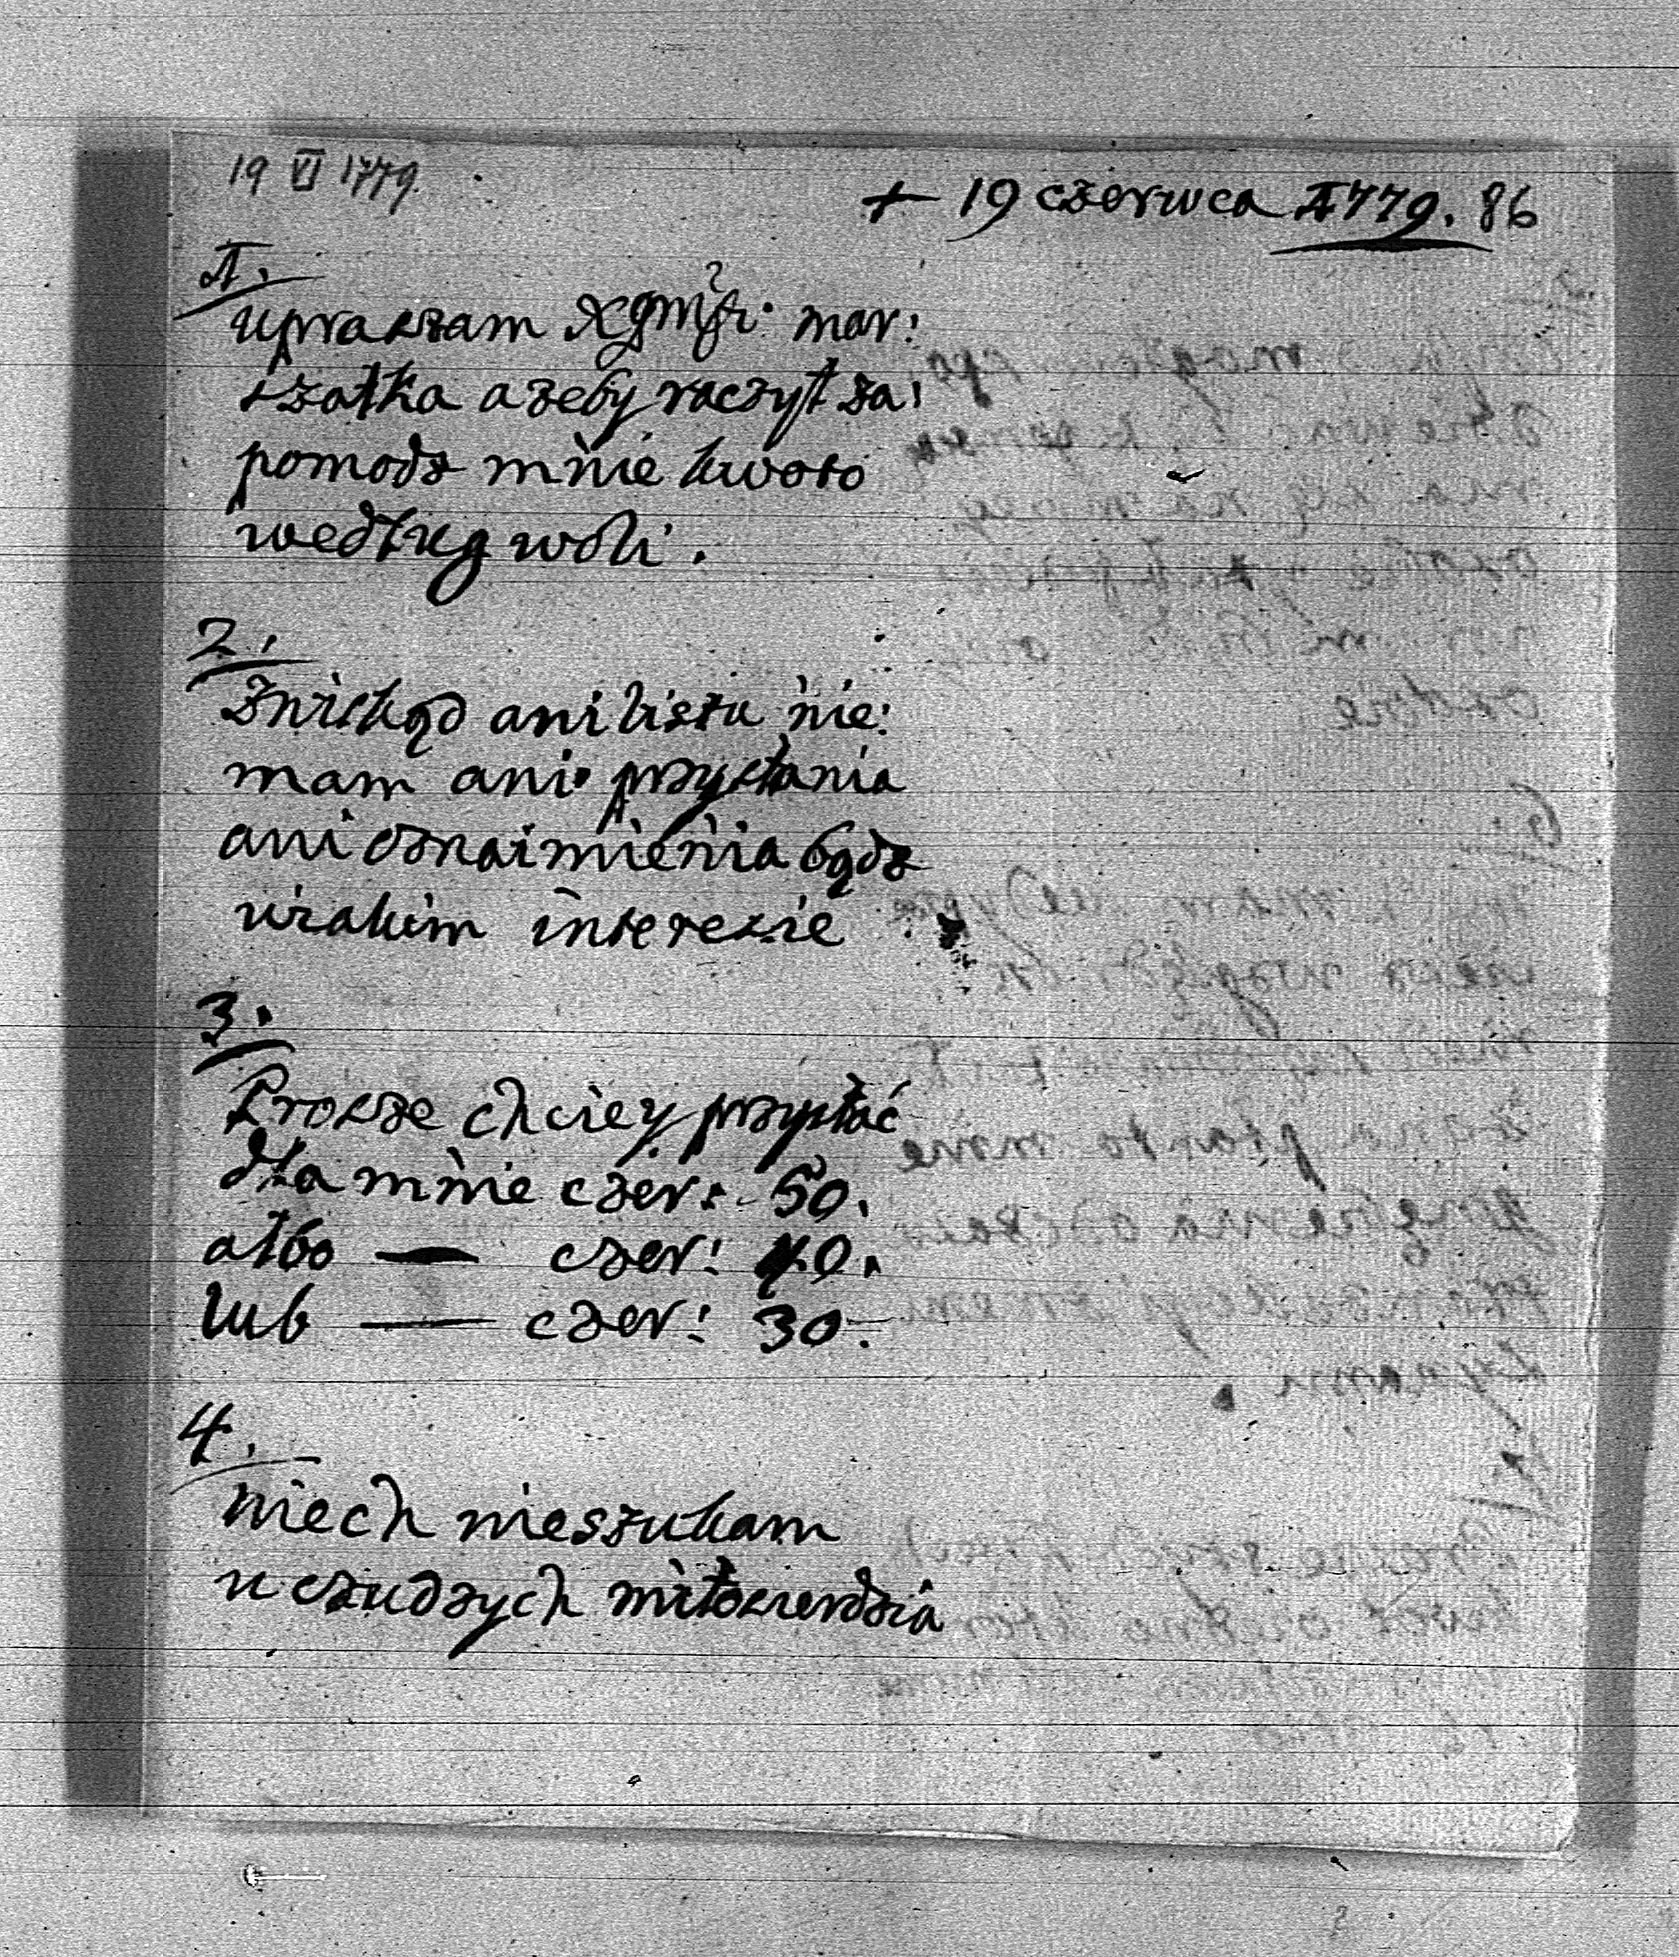 19 VI 1779.
+ 19 czerwca 1779. 86
1.
upraszam mar:
szałka azeby raczył za:
pomodz mnie kwoto
według woli.
2.
Znikąd ani listu nie:
mam ani przysłania
ani oznaimienia bądz
wiakim interesie
3.
Prosze chciey przysłać
dla mnie czer: 50.
albo — czer: 40.
lub — czer: 30.
4.
niech nieszukam
u czudzych miłosierdzia